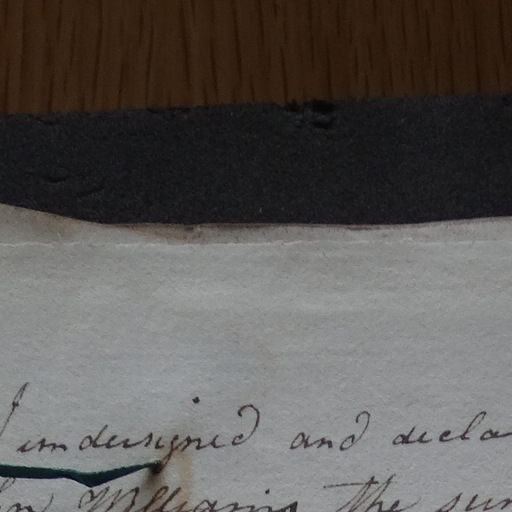 undersigned and decla
Williams the sur